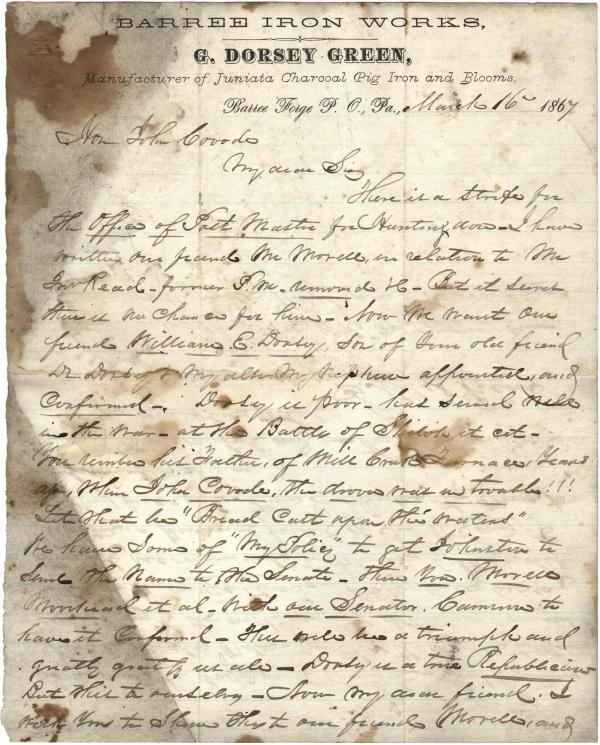 BARREE IRON WORKS,
G. DORSEY GREEN,
Manufacturer of Juniata Charcoal Pig Iron and Blooms,
Barree Forge P. O., Pa., March 16" 1867
Hon John Covode
My dear Sir
There is a strife for
the Office of Post Master for Huntingdon - I have
written our friend Mr Morell, in relation to Mr
Read - former P.M. - removed &c - But it seems
there is no chance for him - Now we want our
friend William E. Dorsey, Son of your old friend
Dr Dorsey & my also My Nephew appointed, and
Confirmed - Dorsey is poor - has served well
in the war - at the Battle of Shiloh et cet -
You his Father, of Mill Creek Furnace, Years
ago, When John Covode, the drover was in trouble!!!
Let that be "Bread Cast upon the waters"
We have Some of "My Policy" to get Johnston to
Send the Name to the Senate - then You. Morell
Moorhead et al - with our Senator. Cameron to
have it Confirmed - This will be a triumph and
greatly gratify us all - Dorsey is a true Republican
But this to ourselves - Now my dear friend. I
wish You to Show this to our friend Morell, and